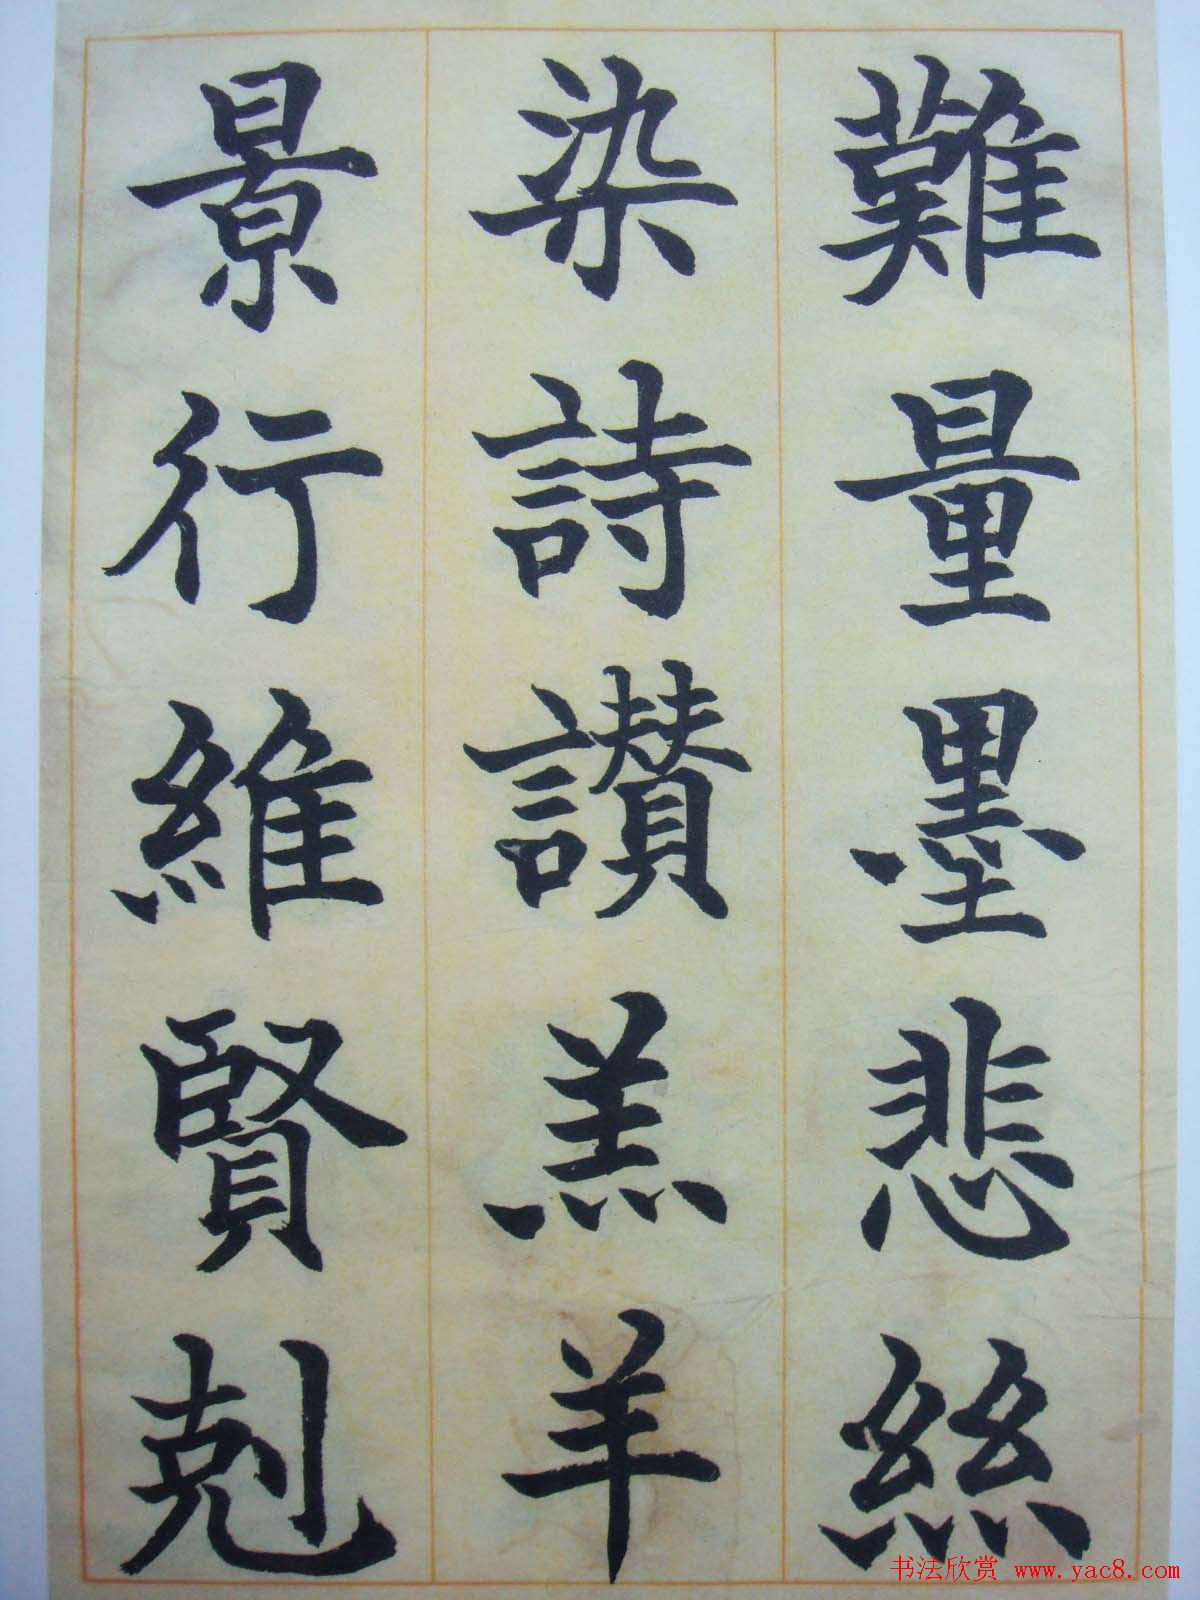 難量墨悲絲
染詩讃羔羊
景行維賢剋
书法欣赏 www.yac8.com